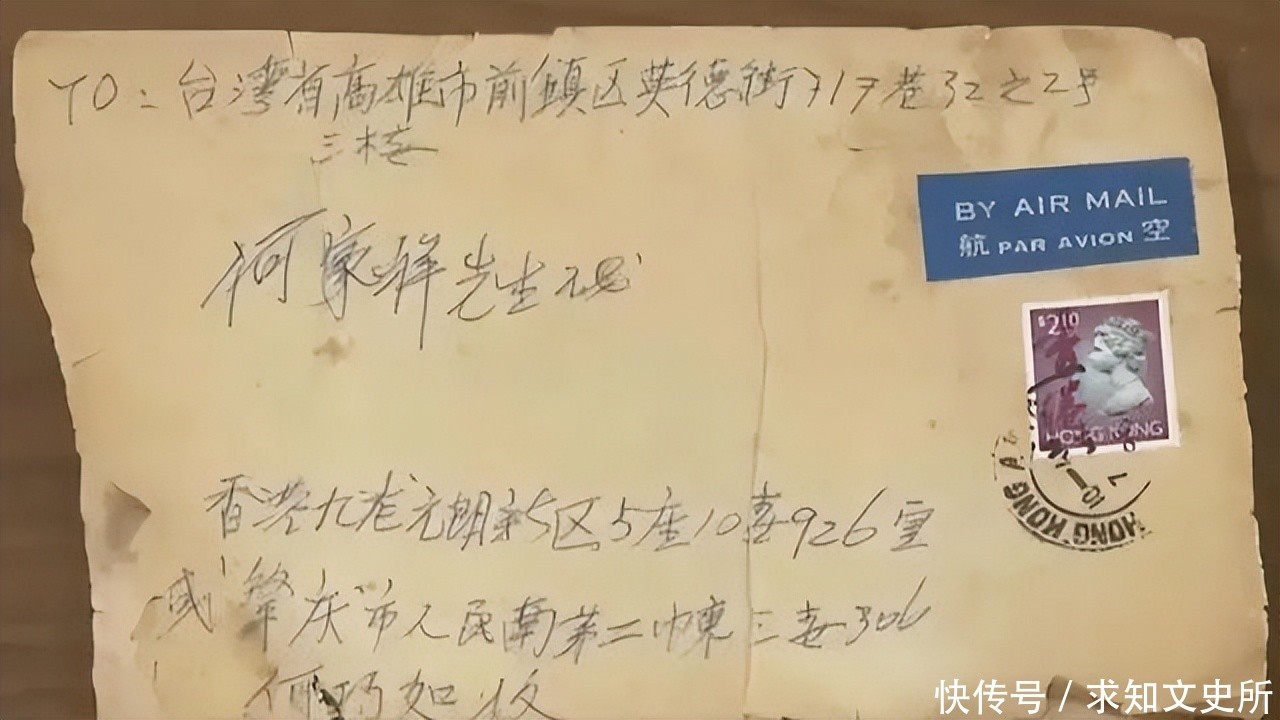 TO: 台湾省高雄市前镇区英德街717巷32之2号
三楼
何家祥先生
BY AIR MAIL
航 PAR AVION 空
$2.10
香港
HONG KONG
HONG KONG
香港九龙元朗新5区5座10楼926室
或肇庆市人民南第二幢三楼306
何巧如收
快传号 / 求知文史所